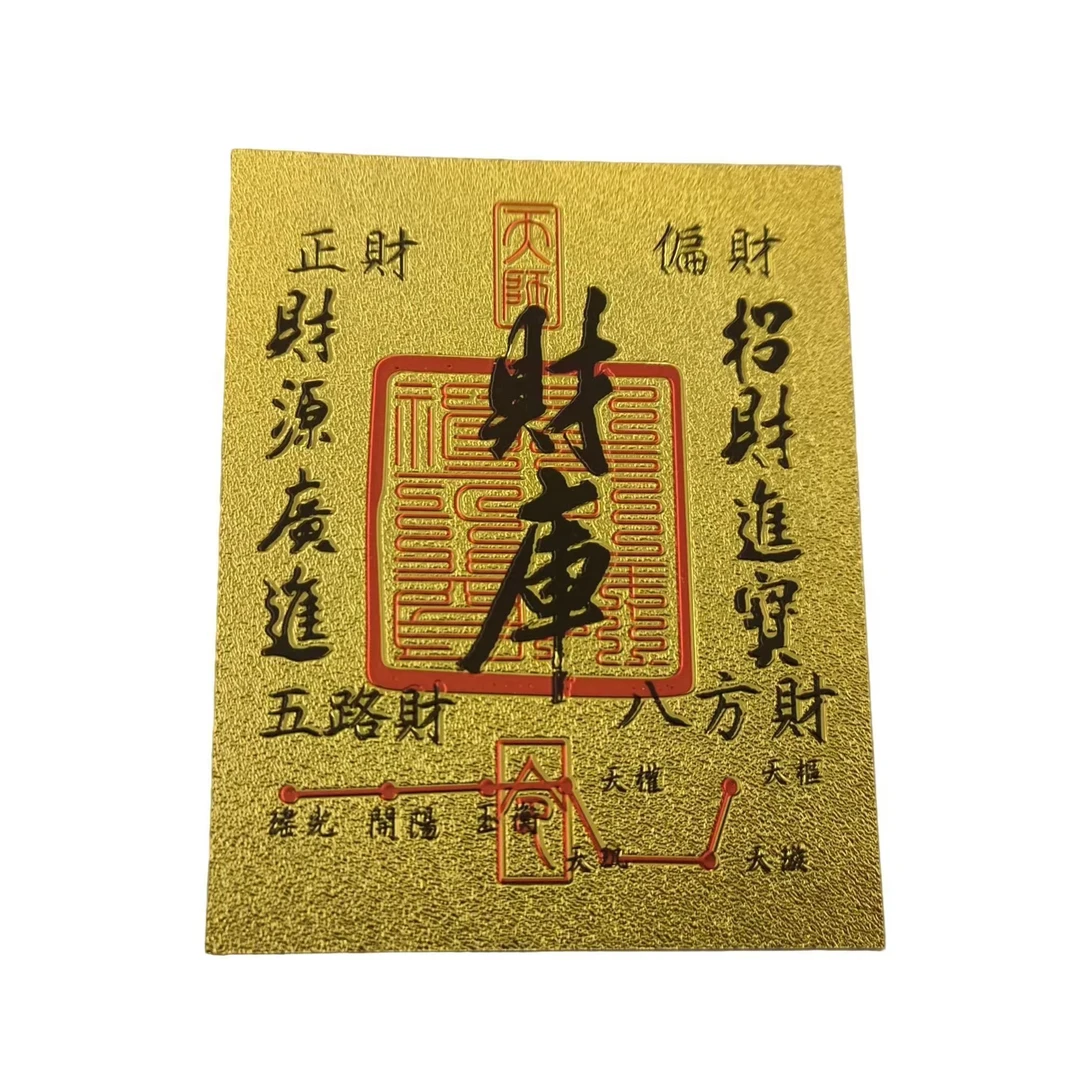 正財
偏財
天師
財庫
招財進寶
財源廣進
五路財
八方財
天權
天樞
瑤光
開陽
玉衡
天璇
令